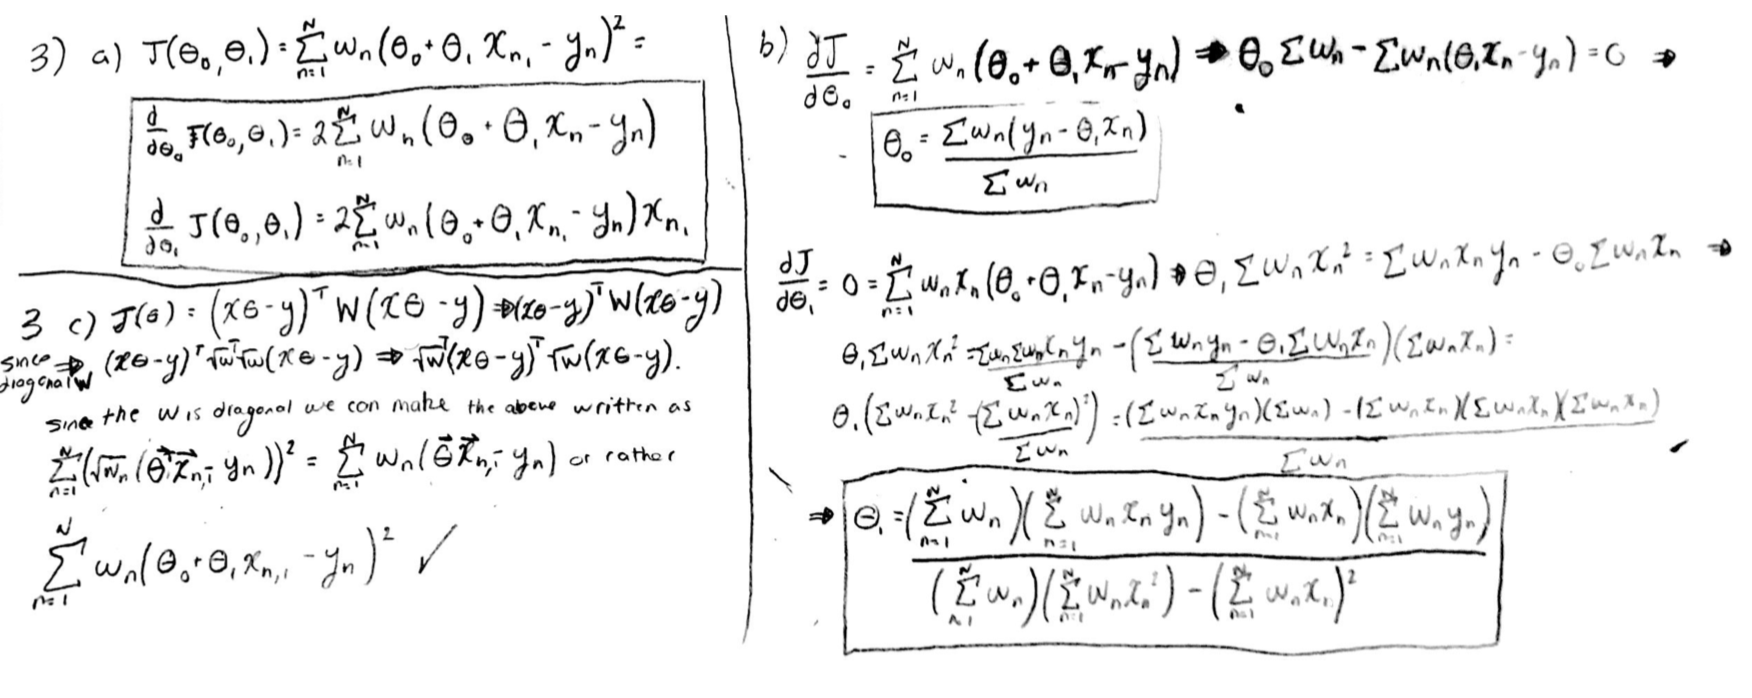 3) a) J(θ₀,θ₁) = Σₙ₌₁ᴺ wₙ(θ₀ + θ₁ xₙ₁ - yₙ)² =
d/dθ₀ J(θ₀,θ₁) = 2 Σₙ₌₁ᴺ wₙ(θ₀ + θ₁ xₙ - yₙ)
d/dθ₁ J(θ₀,θ₁) = 2 Σₙ₌₁ᴺ wₙ(θ₀ + θ₁ xₙ₁ - yₙ) xₙ₁
3 c) J(θ) = (xθ-y)ᵀ W(xθ-y) ⇒ (xθ-y)ᵀ W(xθ-y)
since diagonal W ⇒ (xθ-y)ᵀ √wᵀ √w (xθ-y) ⇒ √wᵀ(xθ-y)ᵀ √w (xθ-y).
since the W is diagonal we can make the above written as
Σₙ₌₁ᴺ (√wₙ (θ⃗ᵀx⃗ₙ - yₙ))² = Σₙ₌₁ᴺ wₙ(θ⃗ x⃗ₙ - yₙ) or rather
Σₙ₌₁ᴺ wₙ(θ₀ + θ₁ xₙ,₁ - yₙ)² ✓
b) dJ/dθ₀ = Σₙ₌₁ᴺ wₙ(θ₀ + θ₁ xₙ - yₙ) ⇒ θ₀ Σwₙ - Σwₙ(θ₁xₙ - yₙ) = 0 ⇒
θ₀ = Σwₙ(yₙ - θ₁xₙ) / Σwₙ
dJ/dθ₁ = 0 = Σₙ₌₁ᴺ wₙxₙ(θ₀ + θ₁xₙ - yₙ) ⇒ θ₁ Σwₙxₙ² = Σwₙxₙyₙ - θ₀ Σwₙxₙ ⇒
θ₁ Σwₙxₙ² = Σwₙ Σwₙxₙyₙ / Σwₙ - (Σwₙyₙ - θ₁Σwₙxₙ)(Σwₙxₙ) / Σwₙ =
θ₁(Σwₙxₙ² - (Σwₙxₙ)² / Σwₙ) = (Σwₙxₙyₙ)(Σwₙ) - (Σwₙxₙ)(Σwₙxₙ)(Σwₙxₙ) / Σwₙ
⇒ θ₁ = (Σₙ₌₁ᴺ wₙ)(Σₙ₌₁ᴺ wₙxₙyₙ) - (Σₙ₌₁ᴺ wₙxₙ)(Σₙ₌₁ᴺ wₙyₙ)
(Σₙ₌₁ᴺ wₙ)(Σₙ₌₁ᴺ wₙxₙ²) - (Σₙ₌₁ᴺ wₙxₙ)²